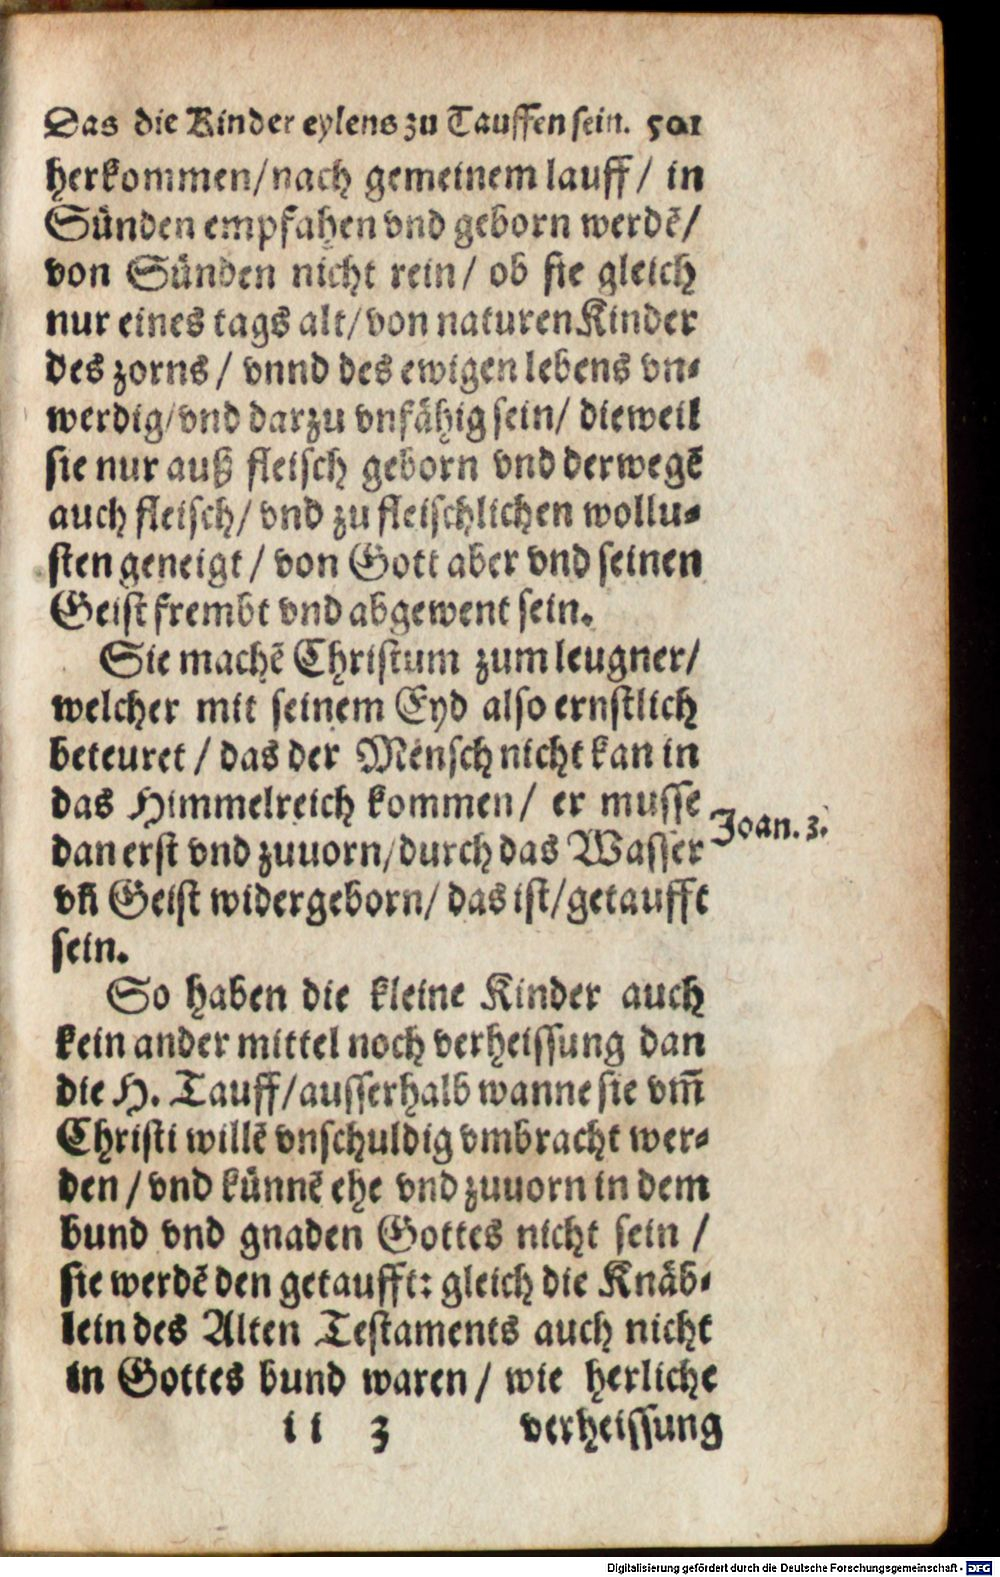 Das die Kinder eylens zu Tauffen sein. 501
herkommen/nach gemeinem lauff/ in
Sünden empfahen vnd geborn werdē/
von Sünden nicht rein/ ob sie gleich
nur eines tags alt/von naturen Kinder
des zorns/ vnnd des ewigen lebens vn-
werdig/vnd darzu vnfähig sein/ dieweil
sie nur auß fleisch geborn vnd derwegē
auch fleisch/ vnd zu fleischlichen wollu-
sten geneigt/ von Gott aber vnd seinen
Geist frembt vnd abgewent sein.
Sie machē Christum zum leugner/
welcher mit seinem Eyd also ernstlich
beteuret/ das der Mensch nicht kan in
das Himmelreich kommen/ er musse
dan erst vnd zuuorn/durch das Wasser
Joan. 3.
vñ Geist widergeborn/ das ist/getaufft
sein.
So haben die kleine Kinder auch
kein ander mittel noch verheissung dan
die H. Tauff/ausserhalb wanne sie vm̄
Christi willē vnschuldig vmbracht wer-
den/vnd künnē ehe vnd zuuorn in dem
bund vnd gnaden Gottes nicht sein /
sie werdē den getaufft: gleich die Knäb-
lein des Alten Testaments auch nicht
in Gottes bund waren/ wie herliche
ii 3 verheissung
Digitalisierung gefördert durch die Deutsche Forschungsgemeinschaft - DFG